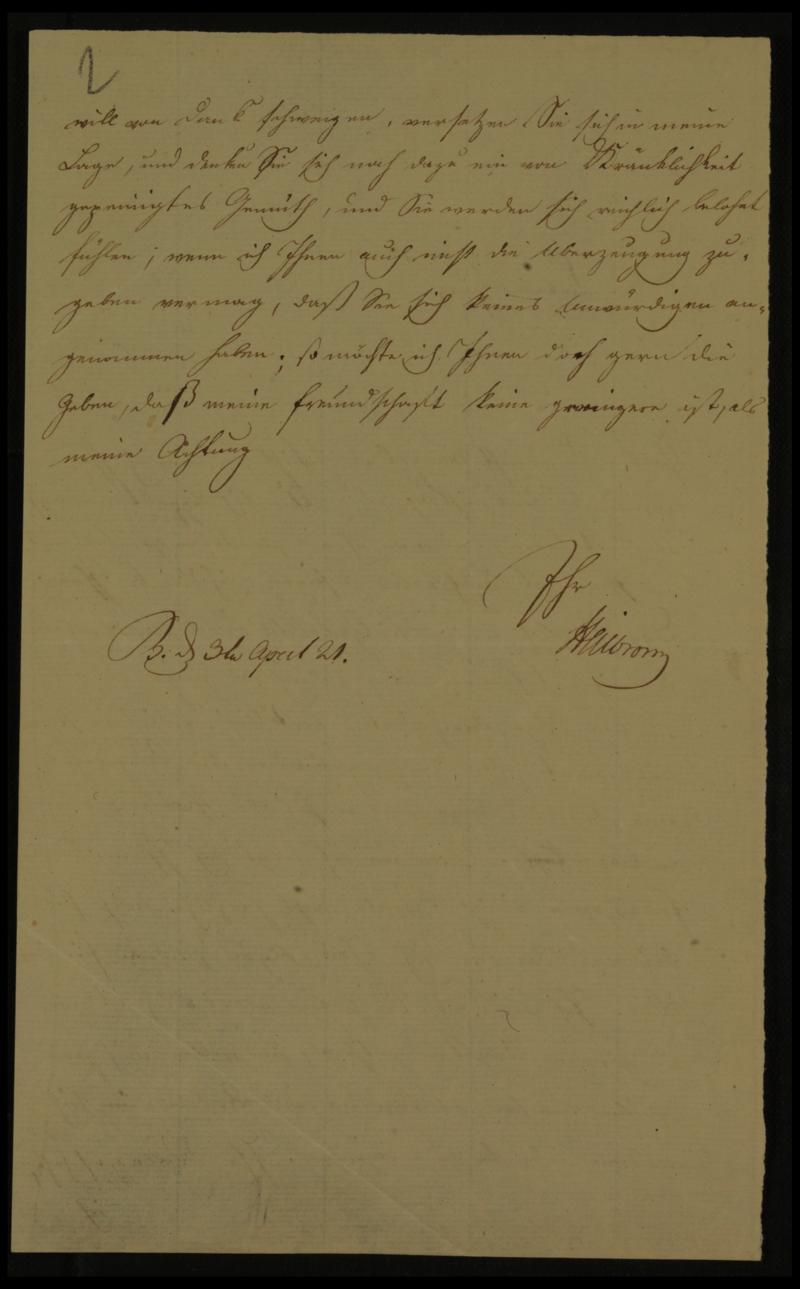 2
will von Dank schweigen, versetzen Sie sich in meine
Lage, und denken Sie sich noch dazu ein von Kränklichkeit
gepeinigtes Gemüth, und Sie werden sich reichlich belohnt
fühlen; wenn ich Ihnen auch nicht die Überzeugung zu-
geben vermag, daß Sie sich keines Unwürdigen an-
genommen haben; so möchte ich Ihnen doch gern die
Geben, daß meine Freundschaft keine geringere ist, als
meine Achtung
Ihr
Heilbronn
B. d 3t April 21.